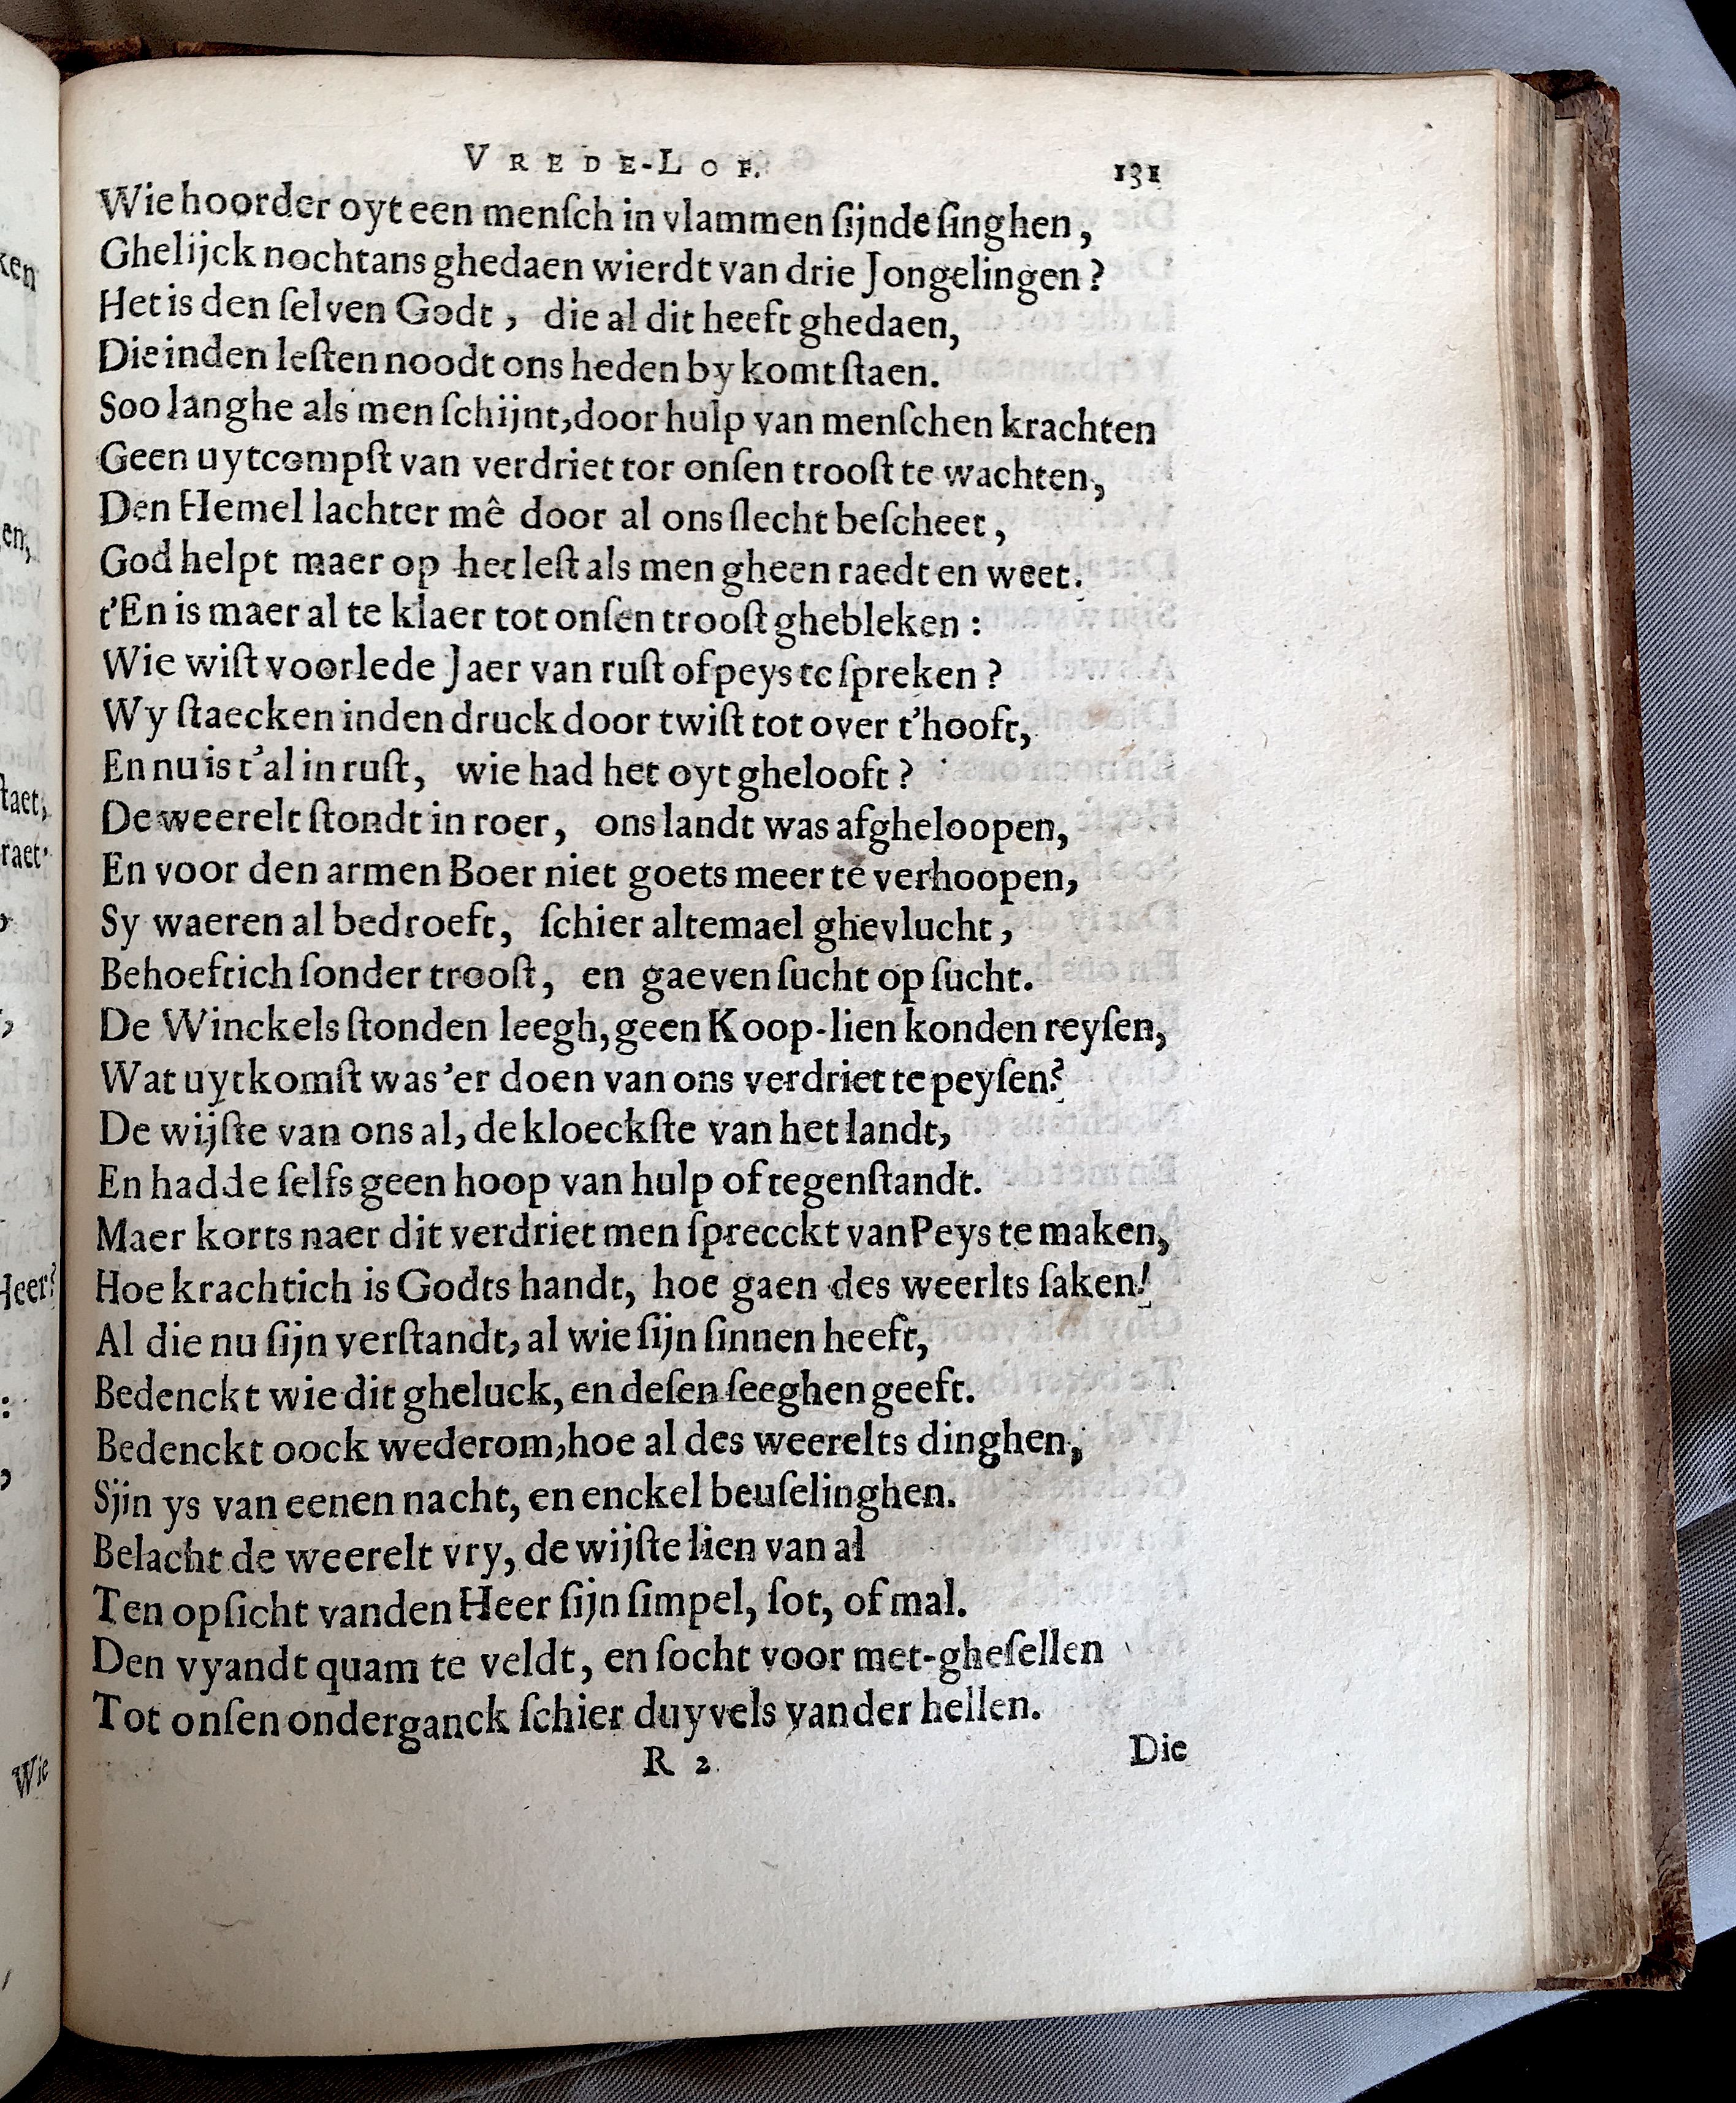 VREDE-LOF. 131
Wie hoorder oyt een menſch in vlammen ſijnde ſinghen,
Ghelijck nochtans ghedaen wierdt van drie Jongelingen?
Het is den ſelven Godt, die al dit heeft ghedaen,
Die inden leſten noodt ons heden by komt ſtaen.
Soo langhe als men ſchijnt, door hulp van menſchen krachten
Geen uytcompſt van verdriet tor onſen trooſt te wachten,
Den Hemel lachter mê door al ons ſlecht beſcheet,
God helpt maer op het leſt als men gheen raedt en weet.
t'En is maer al te klaer tot onſen trooſt ghebleken:
Wie wiſt voorlede Jaer van ruſt of peys te ſpreken?
Wy ſtaecken inden druck door twiſt tot over t'hooft,
En nu is t'al in ruſt, wie had het oyt ghelooft?
De weerelt ſtondt in roer, ons landt was afgheloopen,
En voor den armen Boer niet goets meer te verhoopen,
Sy waeren al bedroeft, ſchier altemael ghevlucht,
Behoeftich ſonder trooſt, en gaeven ſucht op ſucht.
De Winckels ſtonden leegh, geen Koop-lien konden reyſen,
Wat uytkomſt was 'er doen van ons verdriet te peyſen?
De wijſte van ons al, de kloeckſte van het landt,
En hadde ſelfs geen hoop van hulp of tegenſtandt.
Maer korts naer dit verdriet men ſprecckt van Peys te maken,
Hoe krachtich is Godts handt, hoe gaen des weerlts ſaken!
Al die nu ſijn verſtandt, al wie ſijn ſinnen heeft,
Bedenckt wie dit gheluck, en deſen ſeeghen geeft.
Bedenckt oock wederom, hoe al des weerelts dinghen,
Sjin ys van eenen nacht, en enckel beuſelinghen.
Belacht de weerelt vry, de wijſte lien van al
Ten opſicht vanden Heer ſijn ſimpel, ſot, of mal.
Den vyandt quam te veldt, en ſocht voor met-gheſellen
Tot onſen onderganck ſchier duyvels vander hellen.
R 2 Die
ken
en,
taet,
raet.
Heer?
:
,
Wie